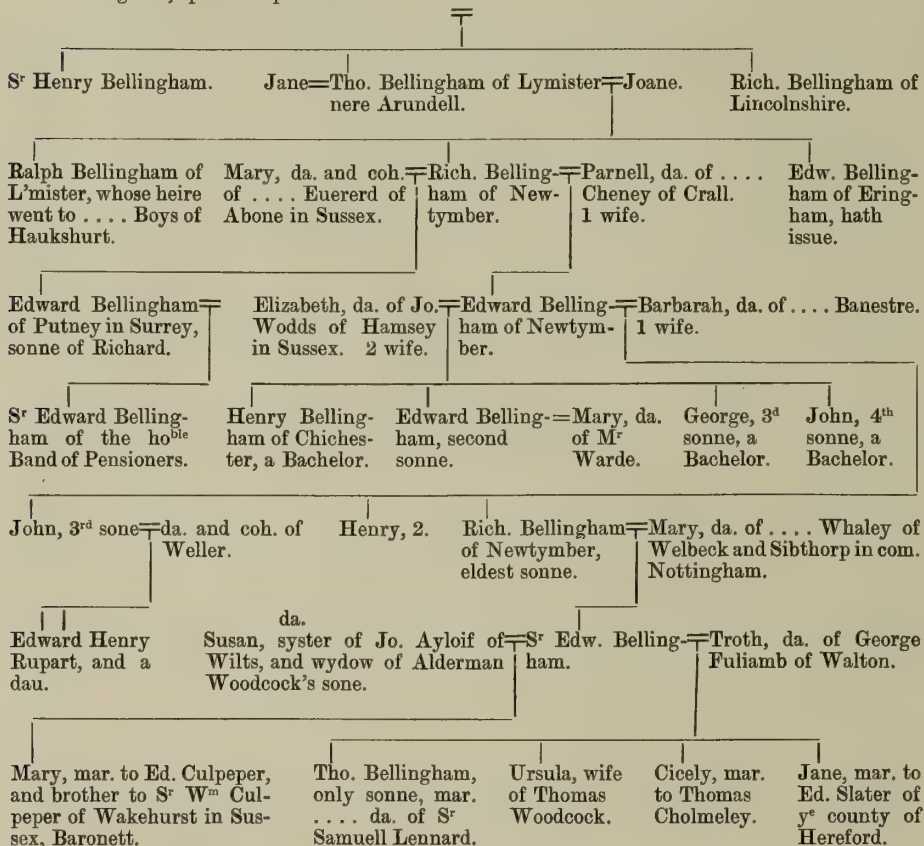 Sʳ Henry Bellingham.
Jane=Tho. Bellingham of Lymister=Joane.
nere Arundell.
Rich. Bellingham of
Lincolnshire.
Ralph Bellingham of
L'mister, whose heire
went to .... Boys of
Haukshurt.
Mary, da. and coh.
of .... Euererd of
Abone in Sussex.
Rich. Belling-
ham of New-
tymber.
Parnell, da. of ....
Cheney of Crall.
1 wife.
Edw. Belling-
ham of Ering-
ham, hath
issue.
Edward Bellingham
of Putney in Surrey,
sonne of Richard.
Elizabeth, da. of Jo.
Wodds of Hamsey
in Sussex. 2 wife.
Edward Belling-
ham of Newtym-
ber.
Barbarah, da. of .... Banestre.
1 wife.
Sʳ Edward Belling-
ham of the hoᵇˡᵉ
Band of Pensioners.
Henry Belling-
ham of Chiches-
ter, a Bachelor.
Edward Belling-
ham, second
sonne.
=Mary, da.
of Mʳ
Warde.
George, 3ᵈ
sonne, a
Bachelor.
John, 4ᵗʰ
sonne, a
Bachelor.
John, 3ʳᵈ sone
da. and coh. of
Weller.
Henry, 2.
Rich. Bellingham
of Newtymber,
eldest sonne.
Mary, da. of .... Whaley of
Welbeck and Sibthorp in com.
Nottingham.
Edward Henry
Rupart, and a
dau.
da.
Susan, syster of Jo. Ayloif of
Wilts, and wydow of Alderman
Woodcock's sone.
Sʳ Edw. Belling-
ham.
Troth, da. of George
Fuliamb of Walton.
Mary, mar. to Ed. Culpeper,
and brother to Sʳ Wᵐ Cul-
peper of Wakehurst in Sus-
sex, Baronett.
Tho. Bellingham,
only sonne, mar.
.... da. of Sʳ
Samuell Lennard.
Ursula, wife
of Thomas
Woodcock.
Cicely, mar.
to Thomas
Cholmeley.
Jane, mar. to
Ed. Slater of
yᵉ county of
Hereford.